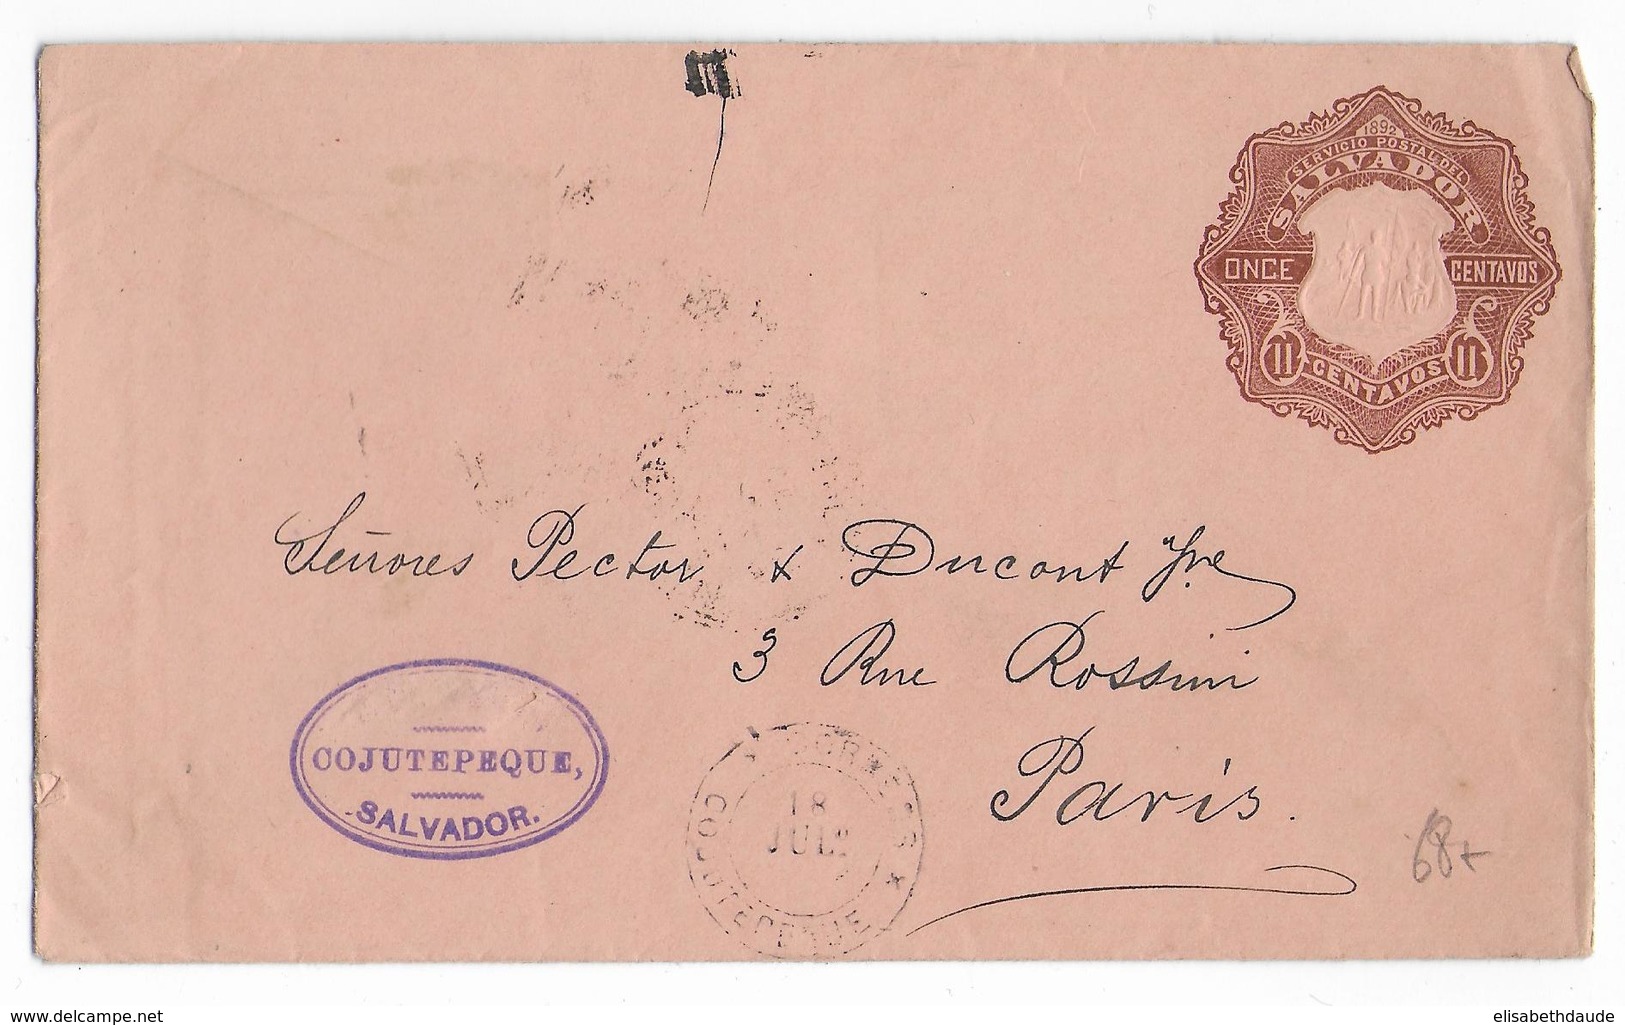 1892
SERVICIO POSTAL DEL
SALVADOR
ONCE CENTAVOS
11 CENTAVOS 11
Señores Pector & Ducout Jne
3 Rue Rossini
Paris.
COJUTEPEQUE,
SALVADOR.
CORREOS
18
JUL
COJUTEPEQUE
68+
www.delcampe.net
elisabethdaude